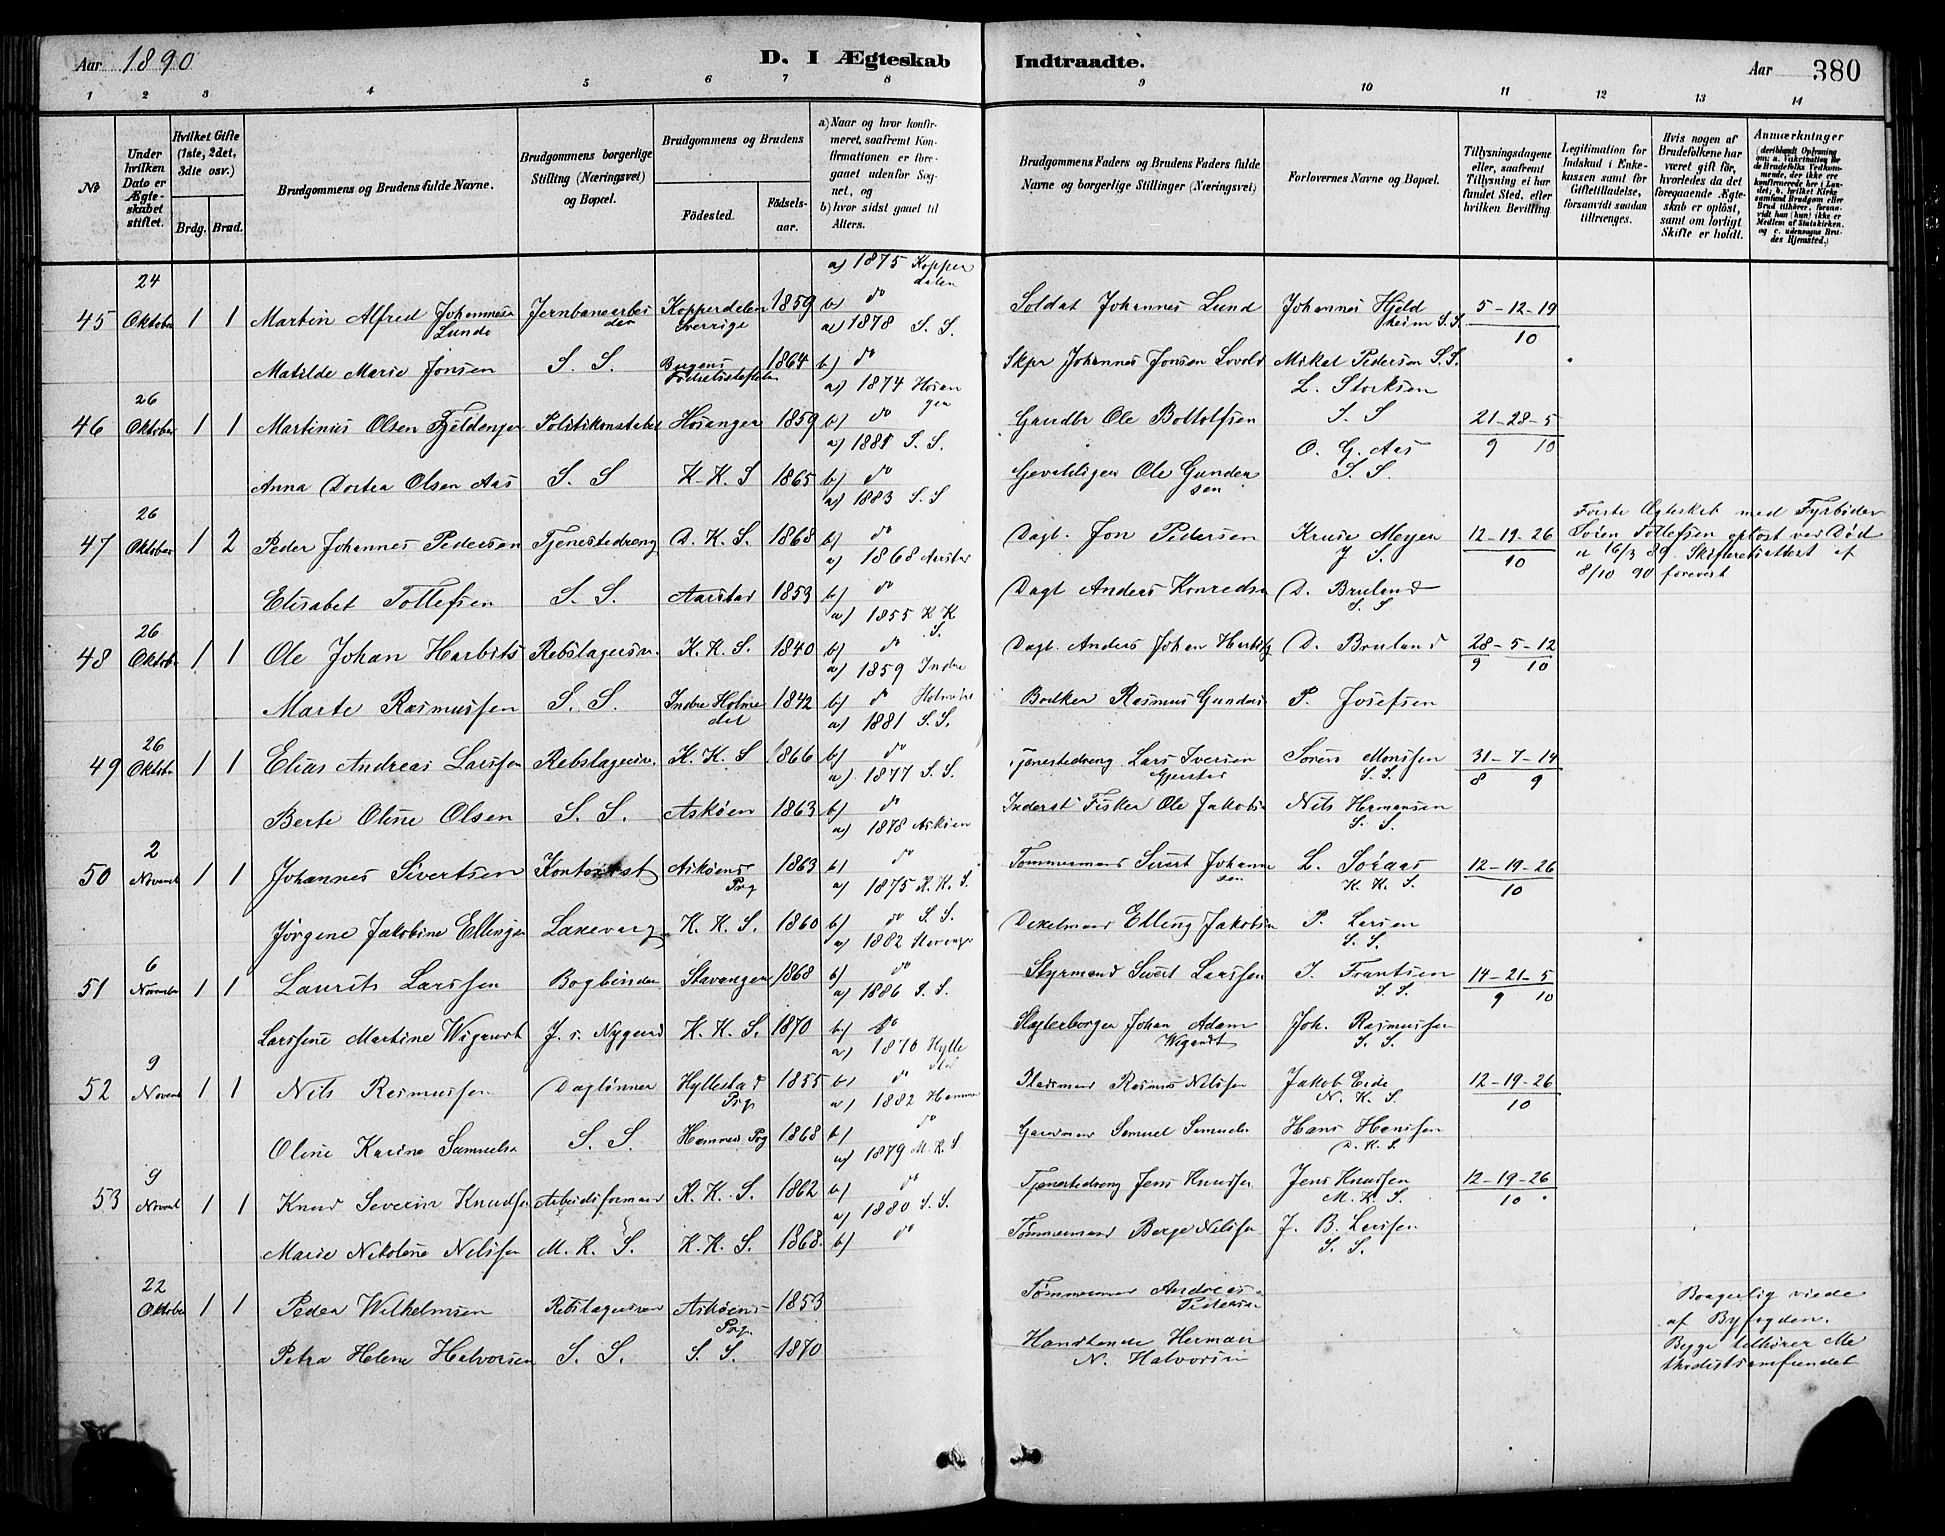 Aar 1890
D. I Ægteskab Indtraadte.
Aar 380
1 2 3 4 5 6 7 8 9 10 11 12 13 14
No
Under hvilken Dato er Ægteskabet stiftet.
Hvilket Gifte (1ste, 2det, 3die osv.)
Brdg. Brud.
Brudgommens og Brudens fulde Navne.
Brudgommens borgerlige Stilling (Næringsvei) og Bopæl.
Brudgommens og Brudens
Födested. Födselsaar.
a) Naar og hvor konfirmeret, saafremt Konfirmationen er foregaaet udenfor Sognet, og
b) hvor sidst gaaet til Alters.
Brudgommens Faders og Brudens Faders fulde Navne og borgerlige Stillinger (Næringsvei)
Forlovernes Navne og Bopæl.
Tillysningsdagene eller, saafremt Tillysning ei har fundet Sted, efter hvilken Bevilling.
Legitimation for Indskud i Enkekassen samt for Giftetilladelse, forsaavidt saadan tiltrænges.
Hvis nogen af Brudefolkene har været gift för, hvorledes da det foregaaende Ægteskab er oplöst, samt om lovligt Skifte er holdt.
Anmærkninger
45 24 Oktober 1 1 Martin Alfred Johannesen Lunde Jernbanearbeider Kopperdalen Sverrige 1859 a) 1875 Kopperdalen b) do Soldat Johannes Lund Johannes Hjeldheim S.S. 5-12-19 10
Matilde Marie Jonsen S. S. Bergens Födselsstiftelse 1864 a) 1878 S. S. b) do Skpr Johannes Jonsen Lovold Mikal Pedersen S.S.
46 26 Oktober 1 1 Martinus Olsen Fjeldenger Politikonstabel Hosanger 1859 a) 1874 Hosanger b) do Gaardbr Ole Boltolfsen L. Storksen S. S 21-28-5 9 10
Anna Dortea Olsen Aas S. S K. K. S 1865 a) 1881 S. S. b) do Gevaldiger Ole Gundersen O. G. Aas S. S.
47 26 Oktober 1 2 Peder Johannes Pedersen Tjenestedreng D. K. S. 1868 a) 1883 S. S b) do Dagl. Jon Pedersen Kruse Meyer J S. 12-19-26 10 Förste Ægteskab med Fyrböder Sören Tollefsen oplöst ved Död 16/3 89. Skifteretsattest af 8/10 90 forevist
Elisabet Tollefsen S. S. Aarstad 1853 a) 1868 Aarstad b) do Dagl Anders Konredsen D. Bruland S. S
48 26 Oktober 1 1 Ole Johan Harbits Rebslagersv. K. K. S. 1840 a) 1855 K K S. b) do Dagl. Anders Johan Harbitz D. Bruland 28-5-12 9 10
Marte Rasmussen S. S. Indre Holmedal 1842 a) 1859 Indre Holmedal b) do Bödker Rasmus Gunders P. Josefsen
49 26 Oktober 1 1 Elias Andreas Larssen Rebslagersv. K. K. S 1866 a) 1881 S. S. b) do Tjenestedreng Lars Iversen Sören Monssen S. S. 31-7-14 8 9
Berte Oline Olsen S. S. Asköen 1863 a) 1877 S. S. b) do Inderst Fisker Ole Jakobsen Nils Hermansen S. S.
50 2 Novemb 1 1 Johannes Sivertsen Kontorist Asköens Prg 1863 a) 1878 Asköen b) do Tömmermand Sivert Johannesen L. Soraas K. K. S. 12-19-26 10
Jörgine Jakobine Ellingsen Laxevaag K. K. S. 1860 a) 1875 K. K. S. b) do S. S. Dexelmand Elling Jakobsen P. Larsen S. S.
51 6 November 1 1 Laurits Larssen Bogbinder Stavanger 1868 a) 1882 Stavanger b) do Styrmand Sivert Larssen J. Frantsen S. S. 14-21-5 9 10
Larssine Martine Wigandt J. s. Nygaard K. K. S. 1870 a) 1886 S. S. b) do Slagterborger Johan Adam Wigandt Joh. Rasmussen S. S.
52 9 Novemb 1 1 Nils Rasmussen Daglönner Hyllestad Prg. 1855 a) 1870 Hyllestad b) do Pladsmand Rasmus Nilssen Jakob Eide N. K. S 12-19-26 10
Oline Karine Samuelsen S. S. Hammers Prg 1868 a) 1882 Hammer b) do Gaardmand Samuel Samuelsen Hans Hanssen D. K. S.
53 9 Novemb 1 1 Knud Severin Knudsen Arbeidsformand K. K. S. 1862 a) 1879 M. K. S b) do Tjenestedreng Jens Knudsen Jens Knudsen M. K. S. 12-19-26 10
Marie Nikoline Nilssen M. K. S K. K. S. 1868 a) 1880 S. S. b) do Tömmermand Berge Nilssen J. B. Larssen S. S.
22 Oktober 1 1 Peder Wilhelmsen Rebslagersven Asköens Prg. 1853 Tömmermand Andreas Petersen Borgerlig viede af Byfogden. Begge tilhörer Methodistsamfundet
Petra Helene Halvorsen S. S. S. S. 1870 Handlende Herman N. Halvorsen